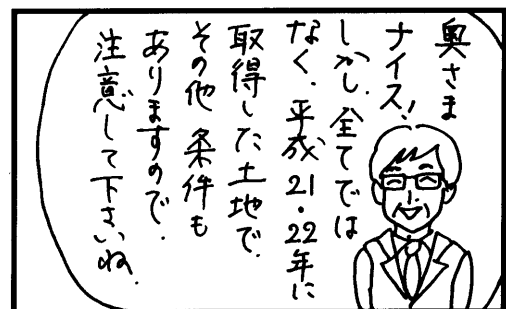 奥さま
ナイス!
しかし、全てでは
なく、平成21・22年に
取得した土地で、
その他 条件も
ありますので、
注意して下さいね。